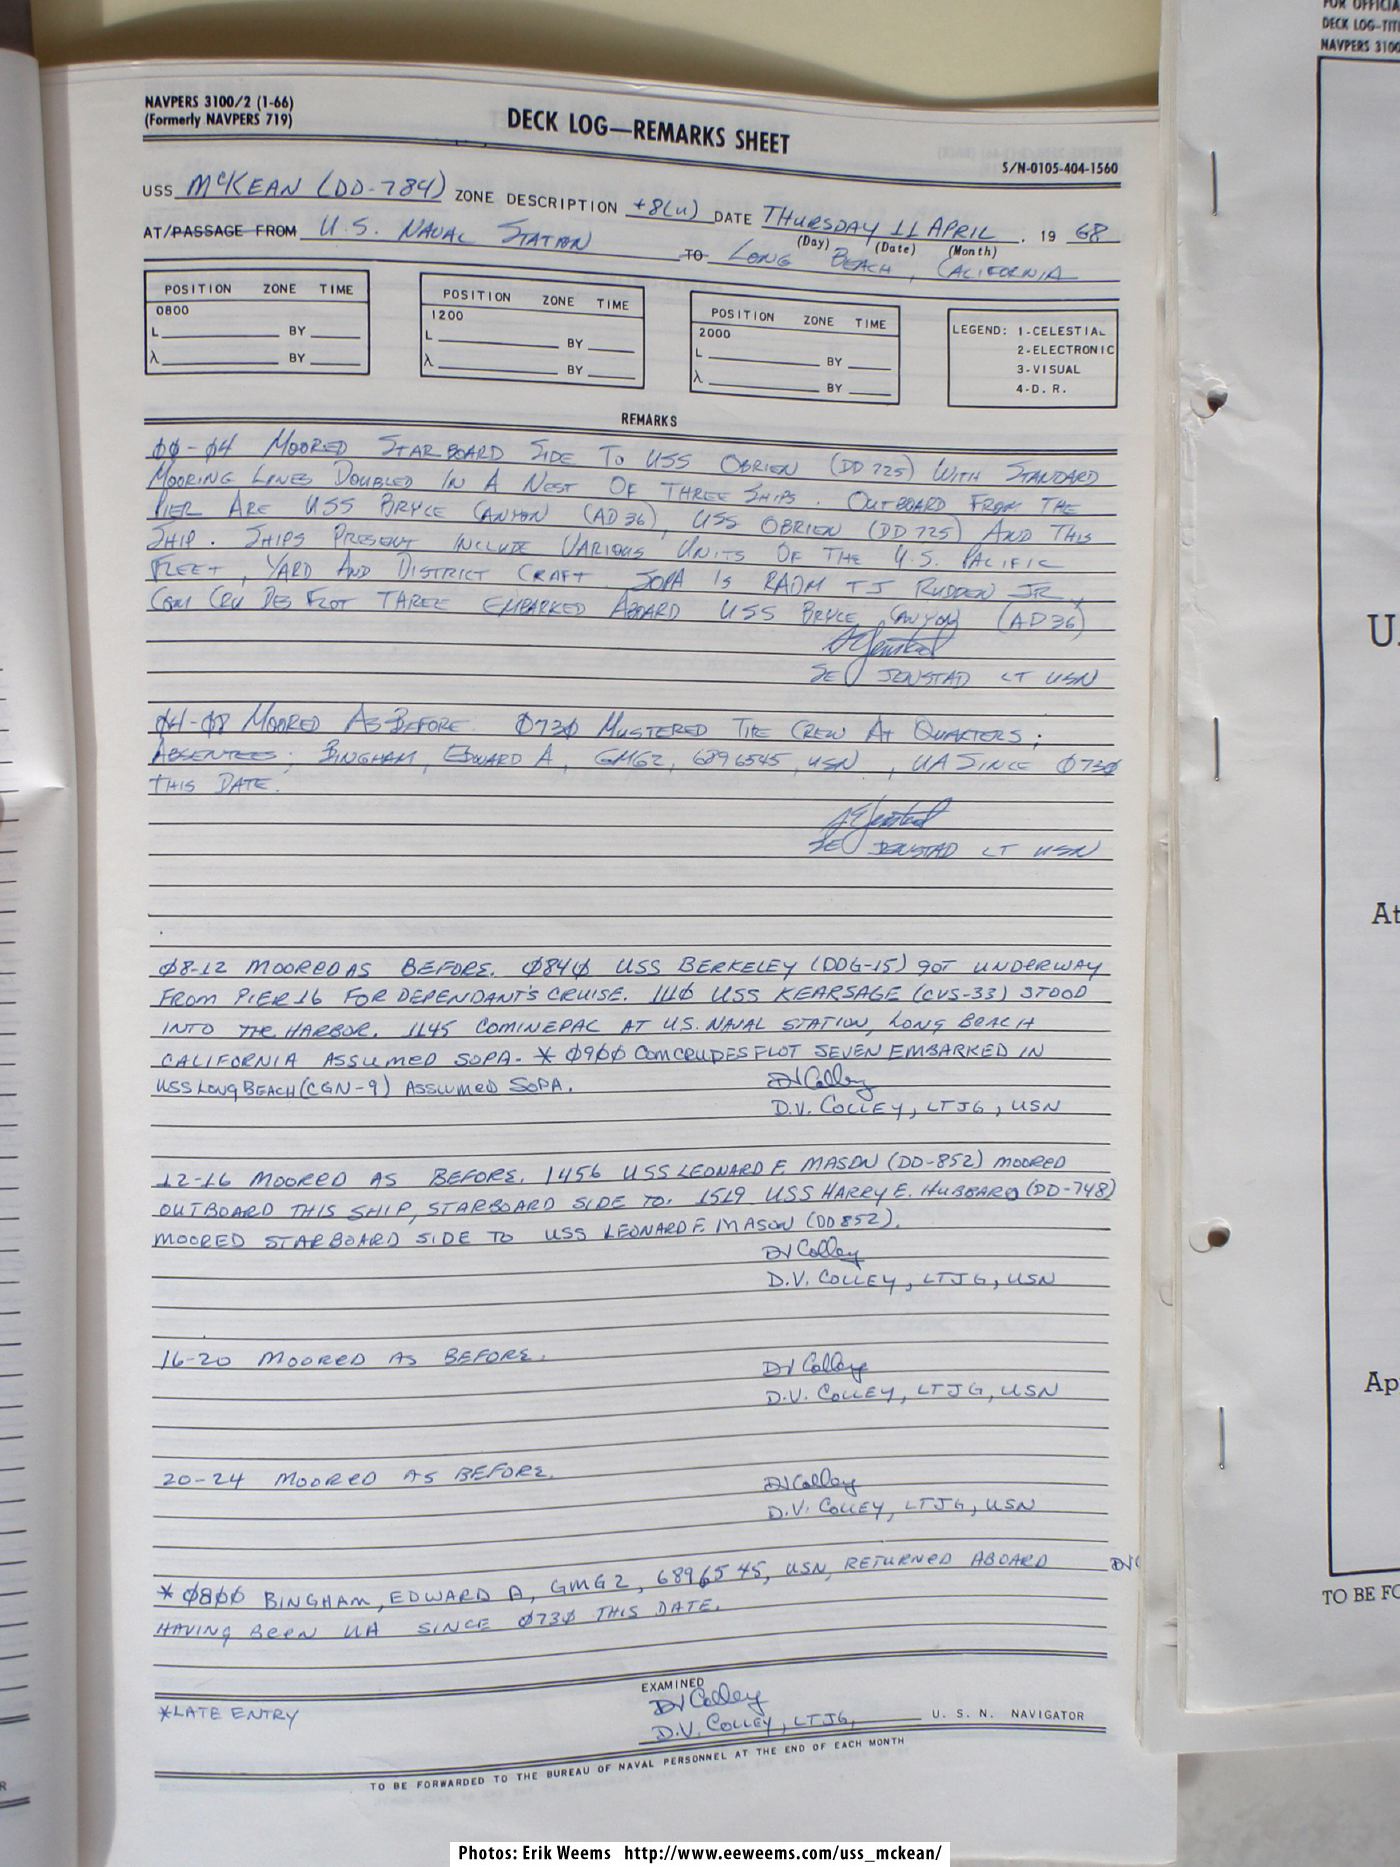 NAVPERS 3100/2 (1-66)
(Formerly NAVPERS 719)
DECK LOG—REMARKS SHEET
S/N-0105-404-1560
USS McKEAN (DD-784) ZONE DESCRIPTION +8(U) DATE THURSDAY 11 APRIL, 19 68
(Day) (Date) (Month)
AT/PASSAGE FROM U.S. NAVAL STATION TO LONG BEACH, CALIFORNIA
POSITION ZONE TIME
0800
L BY
λ BY
POSITION ZONE TIME
1200
L BY
λ BY
POSITION ZONE TIME
2000
L BY
λ BY
LEGEND: 1-CELESTIAL
2-ELECTRONIC
3-VISUAL
4-D. R.
REMARKS
00-04 MOORED STARBOARD SIDE TO USS OBRIEN (DD 725) WITH STANDARD
MOORING LINES DOUBLED IN A NEST OF THREE SHIPS. OUTBOARD FROM THE
PIER ARE USS BRYCE CANYON (AD 36), USS OBRIEN (DD 725) AND THIS
SHIP. SHIPS PRESENT INCLUDE VARIOUS UNITS OF THE U.S. PACIFIC
FLEET, YARD AND DISTRICT CRAFT. SOPA IS RADM TJ RUDDEN JR,
COM CRU DES FLOT THREE EMBARKED ABOARD USS BRYCE CANYON (AD 36)
SE Jenstad
SE JENSTAD LT USN
04-08 MOORED AS BEFORE. 0730 MUSTERED THE CREW AT QUARTERS;
ABSENTEES: BINGHAM, EDWARD A, GMG2, 6896545, USN, UA SINCE 0730
THIS DATE.
SE Jenstad
SE JENSTAD LT USN
08-12 MOORED AS BEFORE. 0840 USS BERKELEY (DDG-15) GOT UNDERWAY
FROM PIER 16 FOR DEPENDANT'S CRUISE. 1110 USS KEARSAGE (CVS-33) STOOD
INTO THE HARBOR. 1145 COMINEPAC AT U.S. NAVAL STATION, LONG BEACH
CALIFORNIA ASSUMED SOPA. * 0900 COMCRUDESFLOT SEVEN EMBARKED IN
USS LONG BEACH (CGN-9) ASSUMED SOPA.
DV Colley
D.V. COLLEY, LTJG, USN
12-16 MOORED AS BEFORE. 1456 USS LEONARD F. MASON (DD-852) MOORED
OUTBOARD THIS SHIP, STARBOARD SIDE TO. 1519 USS HARRY E. HUBBARD (DD-748)
MOORED STARBOARD SIDE TO USS LEONARD F. MASON (DD 852).
DV Colley
D.V. COLLEY, LTJG, USN
16-20 MOORED AS BEFORE.
DV Colley
D.V. COLLEY, LTJG, USN
20-24 MOORED AS BEFORE.
DV Colley
D.V. COLLEY, LTJG, USN
* 0800 BINGHAM, EDWARD A, GMG2, 6896545, USN, RETURNED ABOARD DVC
HAVING BEEN UA SINCE 0730 THIS DATE.
EXAMINED
*LATE ENTRY
DV Colley
D.V. COLLEY, LTJG, U. S. N. NAVIGATOR
TO BE FORWARDED TO THE BUREAU OF NAVAL PERSONNEL AT THE END OF EACH MONTH
FOR OFFICIA
DECK LOG—TITL
NAVPERS 3100
U.
At
Ap
TO BE FO
R
Photos: Erik Weems http://www.eeweems.com/uss_mckean/